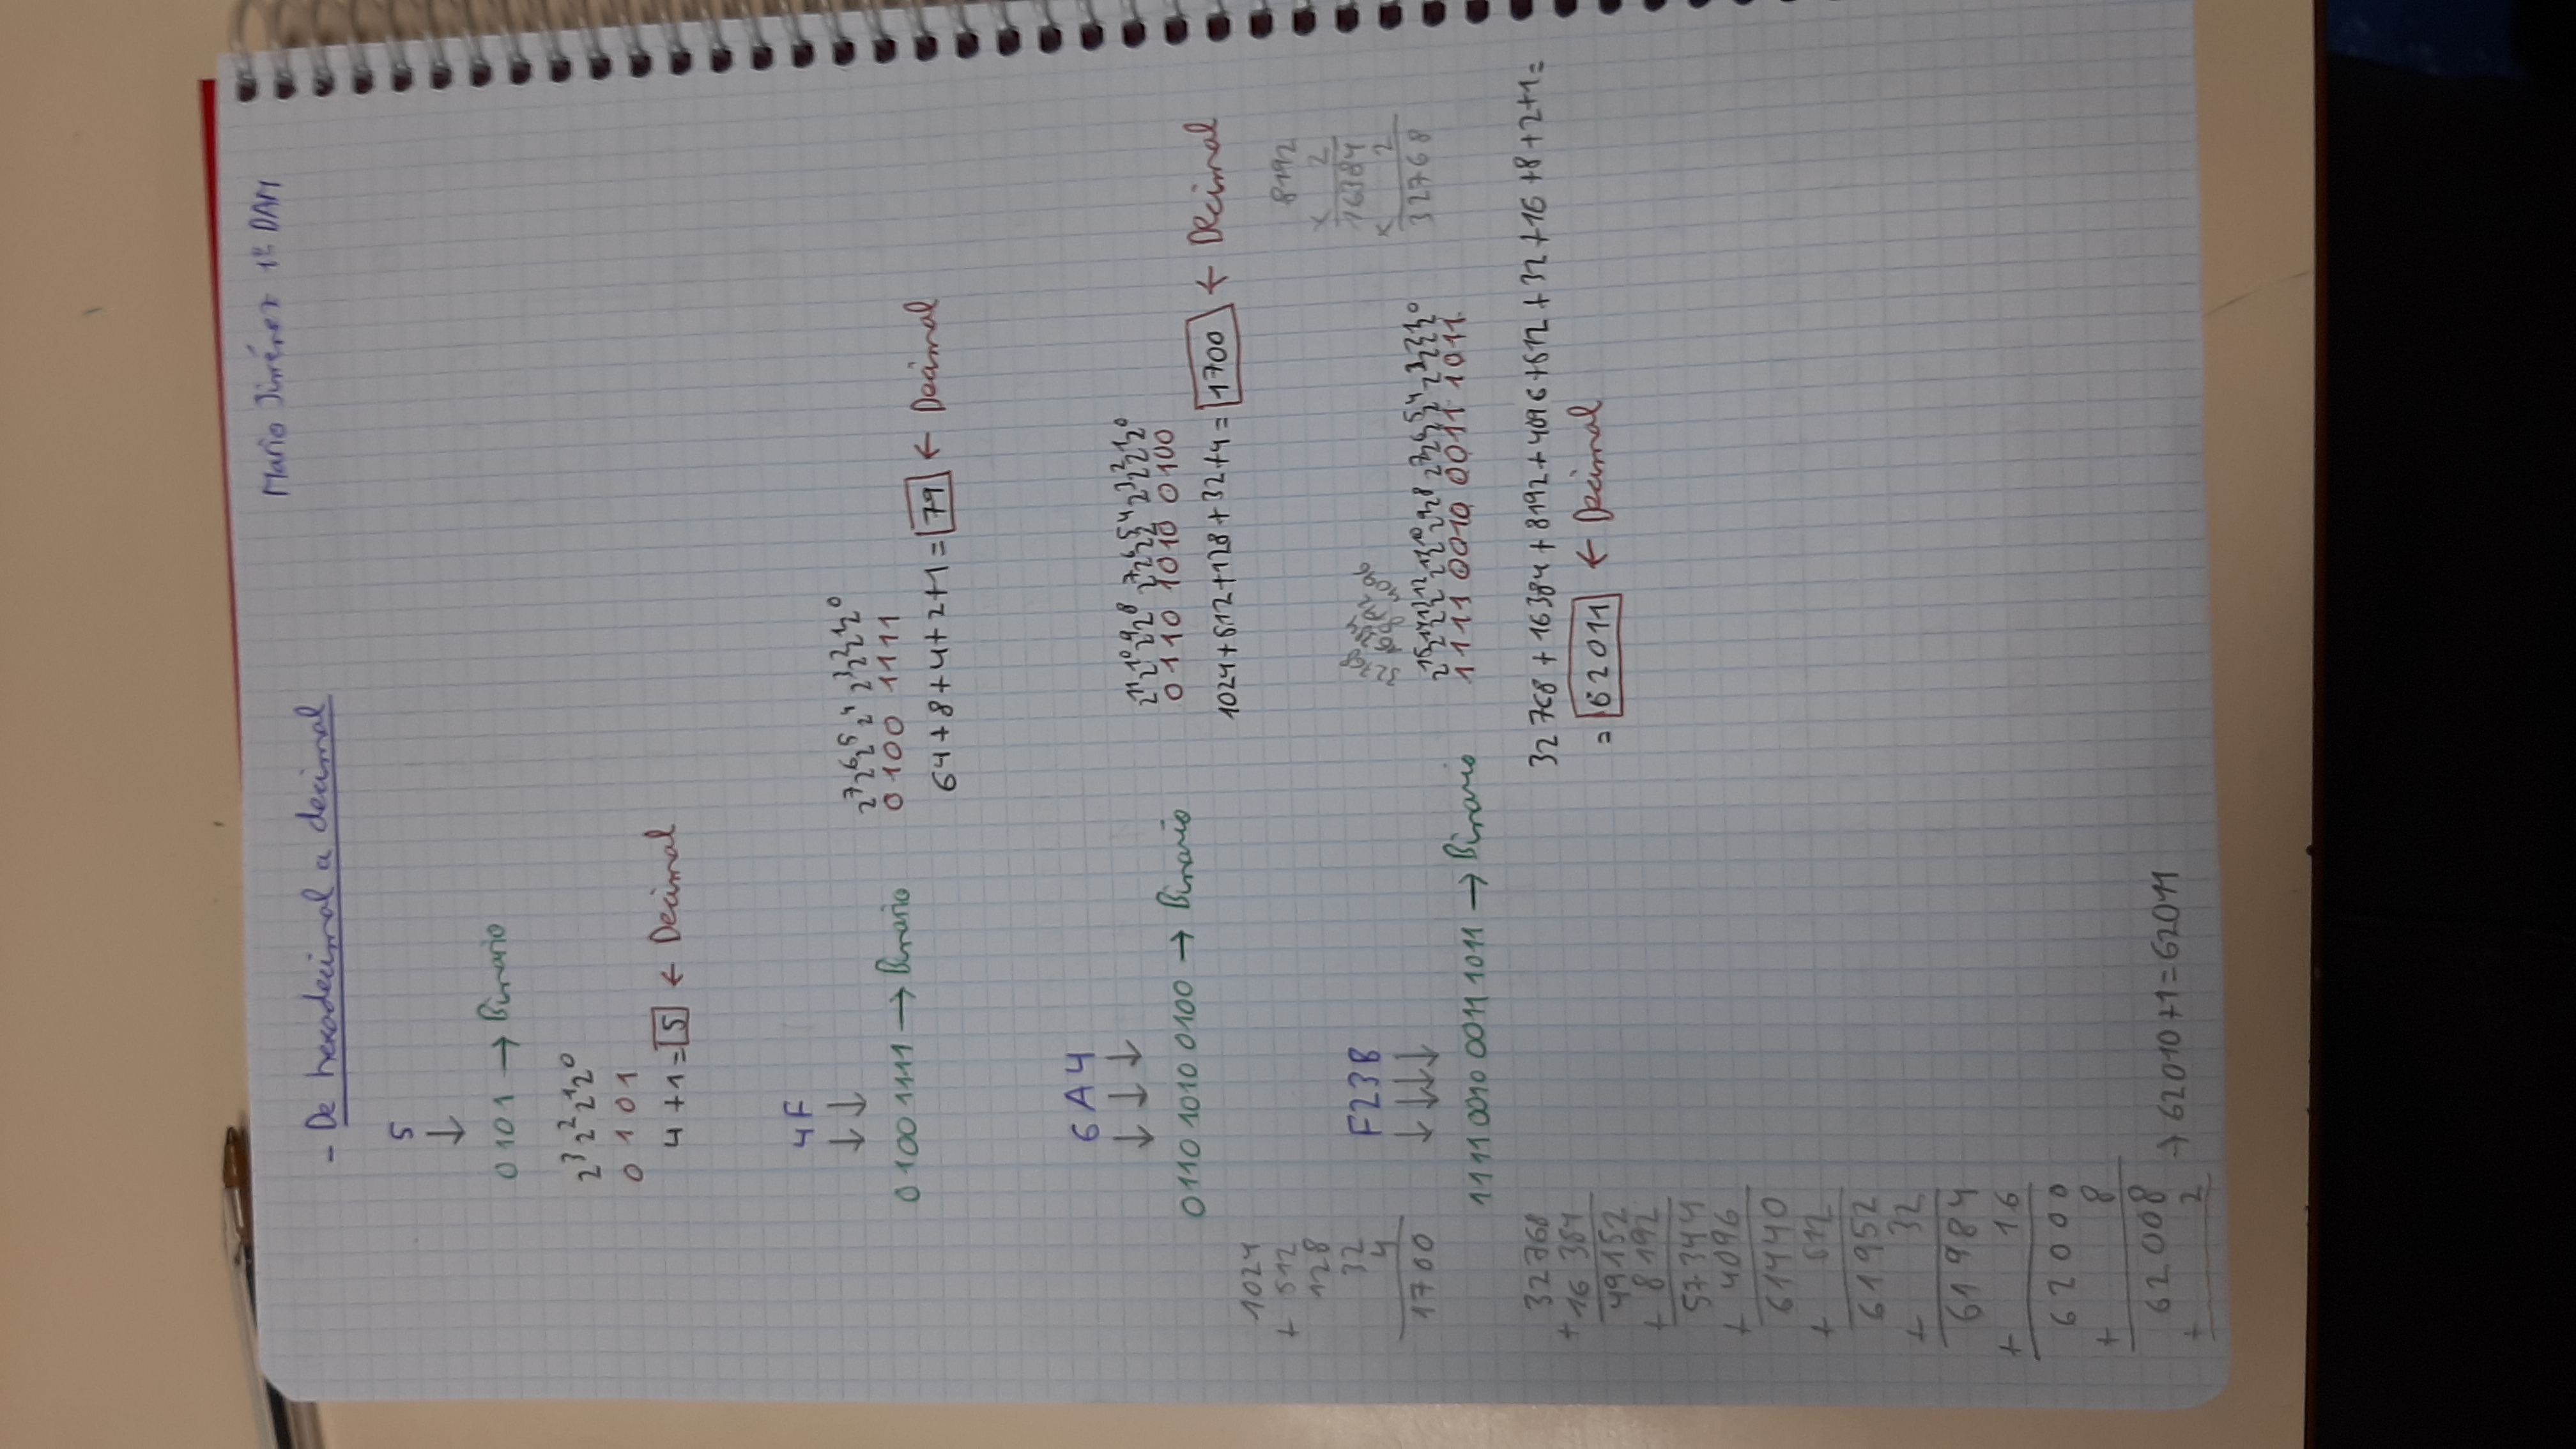 Mario Jiménez 1º DAM
- De hexadecimal a decimal
5
↓
0101 → Binario
2³ 2² 2¹ 2⁰
0 1 0 1
4 + 1 = 5 ← Decimal
4F
↓↓
0100 1111 → Binario
2⁷ 2⁶ 2⁵ 2⁴ 2³ 2² 2¹ 2⁰
0100 1111
64 + 8 + 4 + 2 + 1 = 79 ← Decimal
6A4
↓ ↓ ↓
0110 1010 0100 → Binario
2¹¹ 2¹⁰ 2⁹ 2⁸ 2⁷ 2⁶ 2⁵ 2⁴ 2³ 2² 2¹ 2⁰
0110 1010 0100
1024 + 512 + 128 + 32 + 4 = 1700 ← Decimal
1024
+ 512
128
32
4
1700
8192
x 2
16384
x 2
32768
F23B
↓ ↓↓↓
1111 0010 0011 1011 → Binario
32768
16384
8192
4096
2¹⁵ 2¹⁴ 2¹³ 2¹² 2¹¹ 2¹⁰ 2⁹ 2⁸ 2⁷ 2⁶ 2⁵ 2⁴ 2³ 2² 2¹ 2⁰
1111 0010 0011 1011
32768 + 16384 + 8192 + 4096 + 512 + 32 + 16 + 8 + 2 + 1 =
= 62011 ← Decimal
32768
+ 16384
49152
+ 8192
57344
+ 4096
61440
+ 512
61952
+ 32
61984
+ 16
62000
+ 8
62008
+ 2
→ 62010 + 1 = 62011